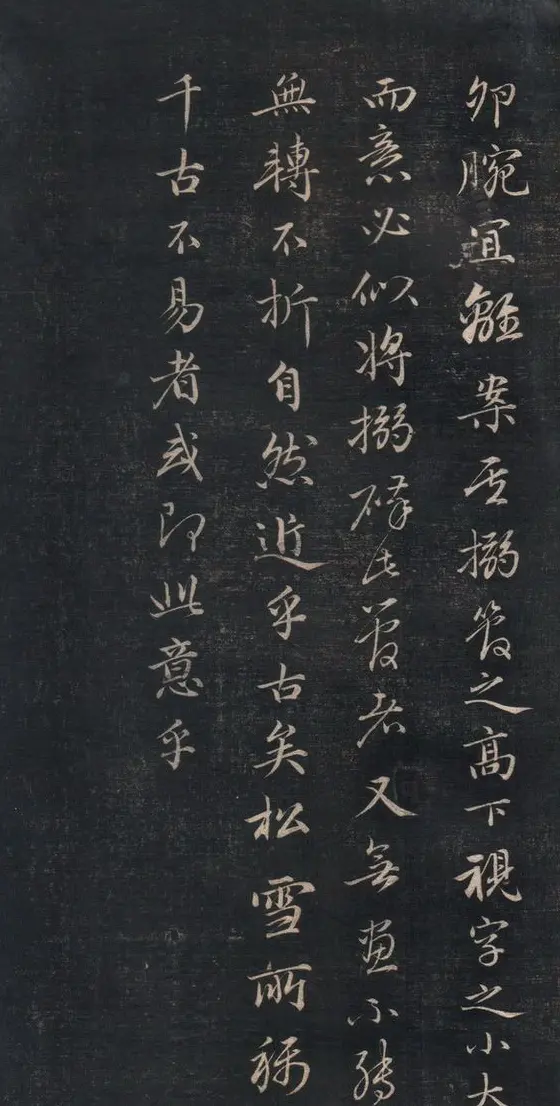 卵腕宜離案其搦管之高下視字之小大
而意必似将搦碎此管者又無畫不轉
無轉不折自然近乎古矣松雪所稱
千古不易者或即此意乎